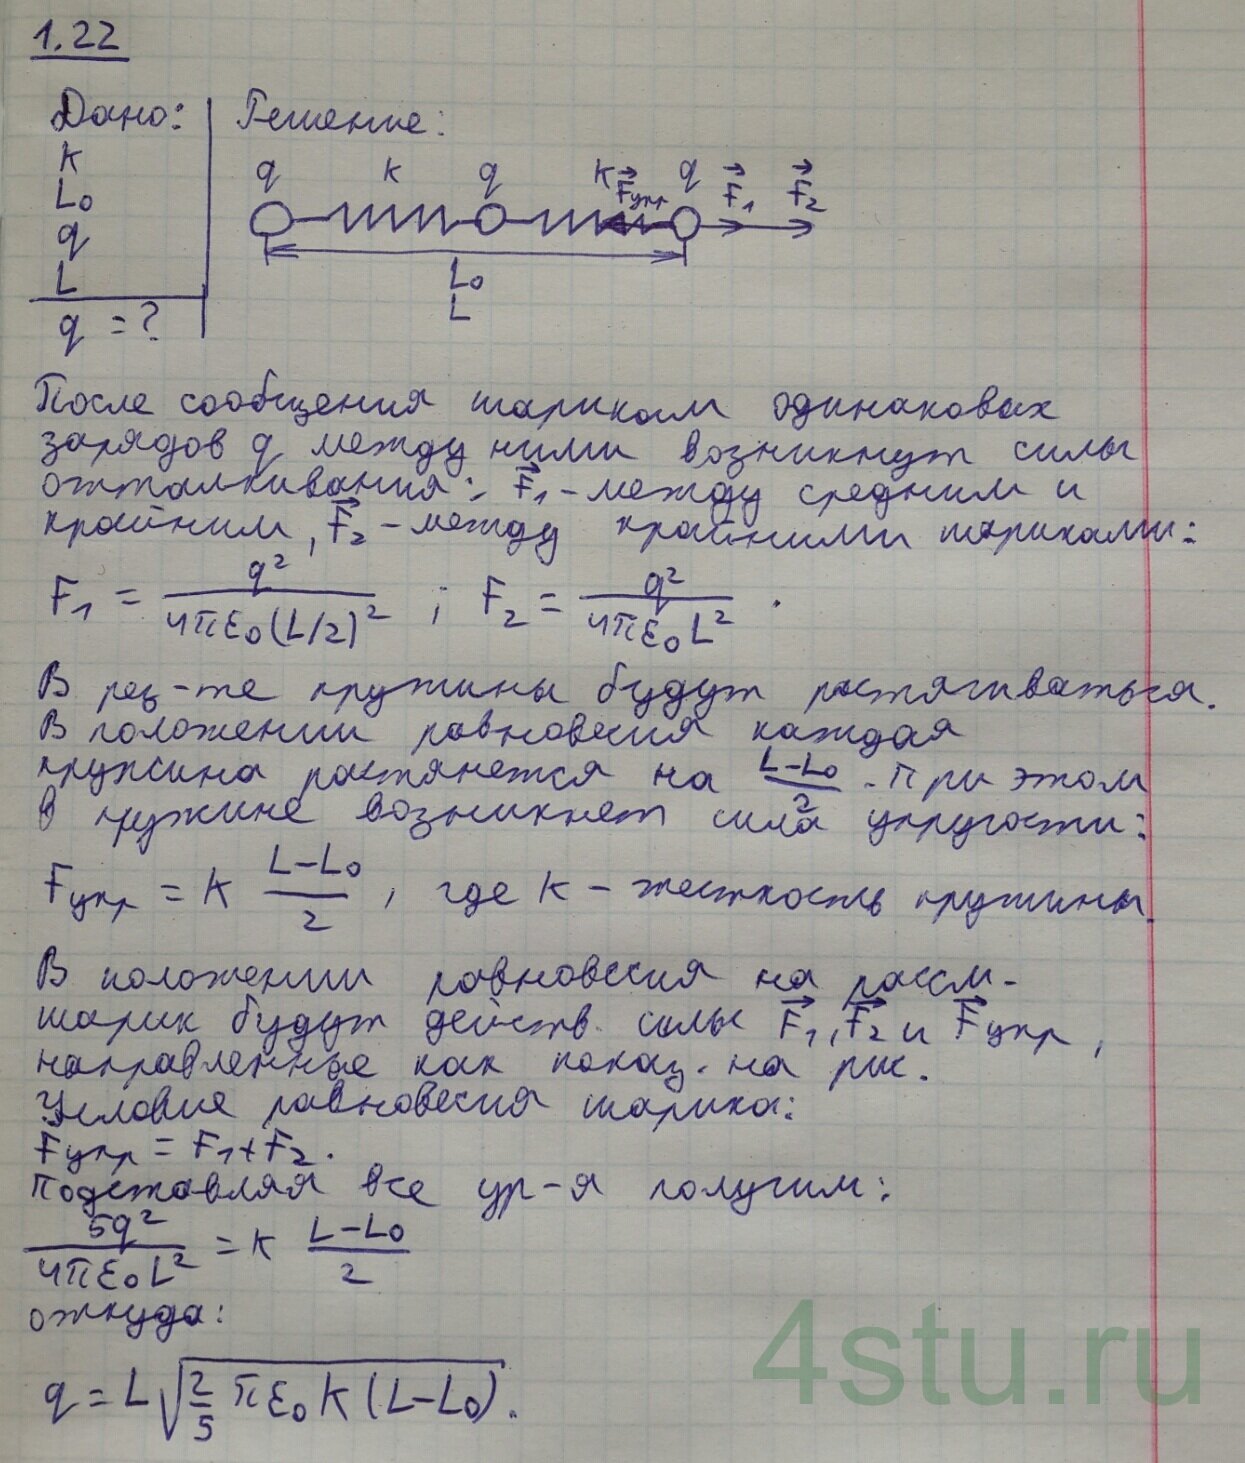 1.22
Дано:
Решение:
k
L₀
q
L
q = ?
q k q k F⃗упр q F⃗₁ F⃗₂
L₀
L
После сообщения шарикам одинаковых
зарядов q между ними возникнут силы
отталкивания: F⃗₁ – между средним и
крайним, F⃗₂ – между крайними шариками:
F₁ = q² / 4πε₀(L/2)² ; F₂ = q² / 4πε₀L² .
В рез-те пружины будут растягиваться.
В положении равновесия каждая
пружина растянется на (L–L₀)/2 . При этом
в пружине возникнет сила упругости:
Fупр = k (L–L₀)/2 , где k – жесткость пружины.
В положении равновесия на рассм-
шарик будут действ. силы F⃗₁, F⃗₂ и F⃗упр ,
направленные как показ. на рис.
Условие равновесия шарика:
Fупр = F₁+F₂.
Подставляя все ур-я получим:
5q² / 4πε₀L² = k (L–L₀)/2
откуда:
q = L√(2/5 πε₀k(L–L₀)).
4stu.ru